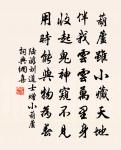 葫蘆雖小藏天地
伴我雲雲萬里身
收起鬼神窺不見
用時能與物為春
陸游劉道士贈小葫蘆
詞典網